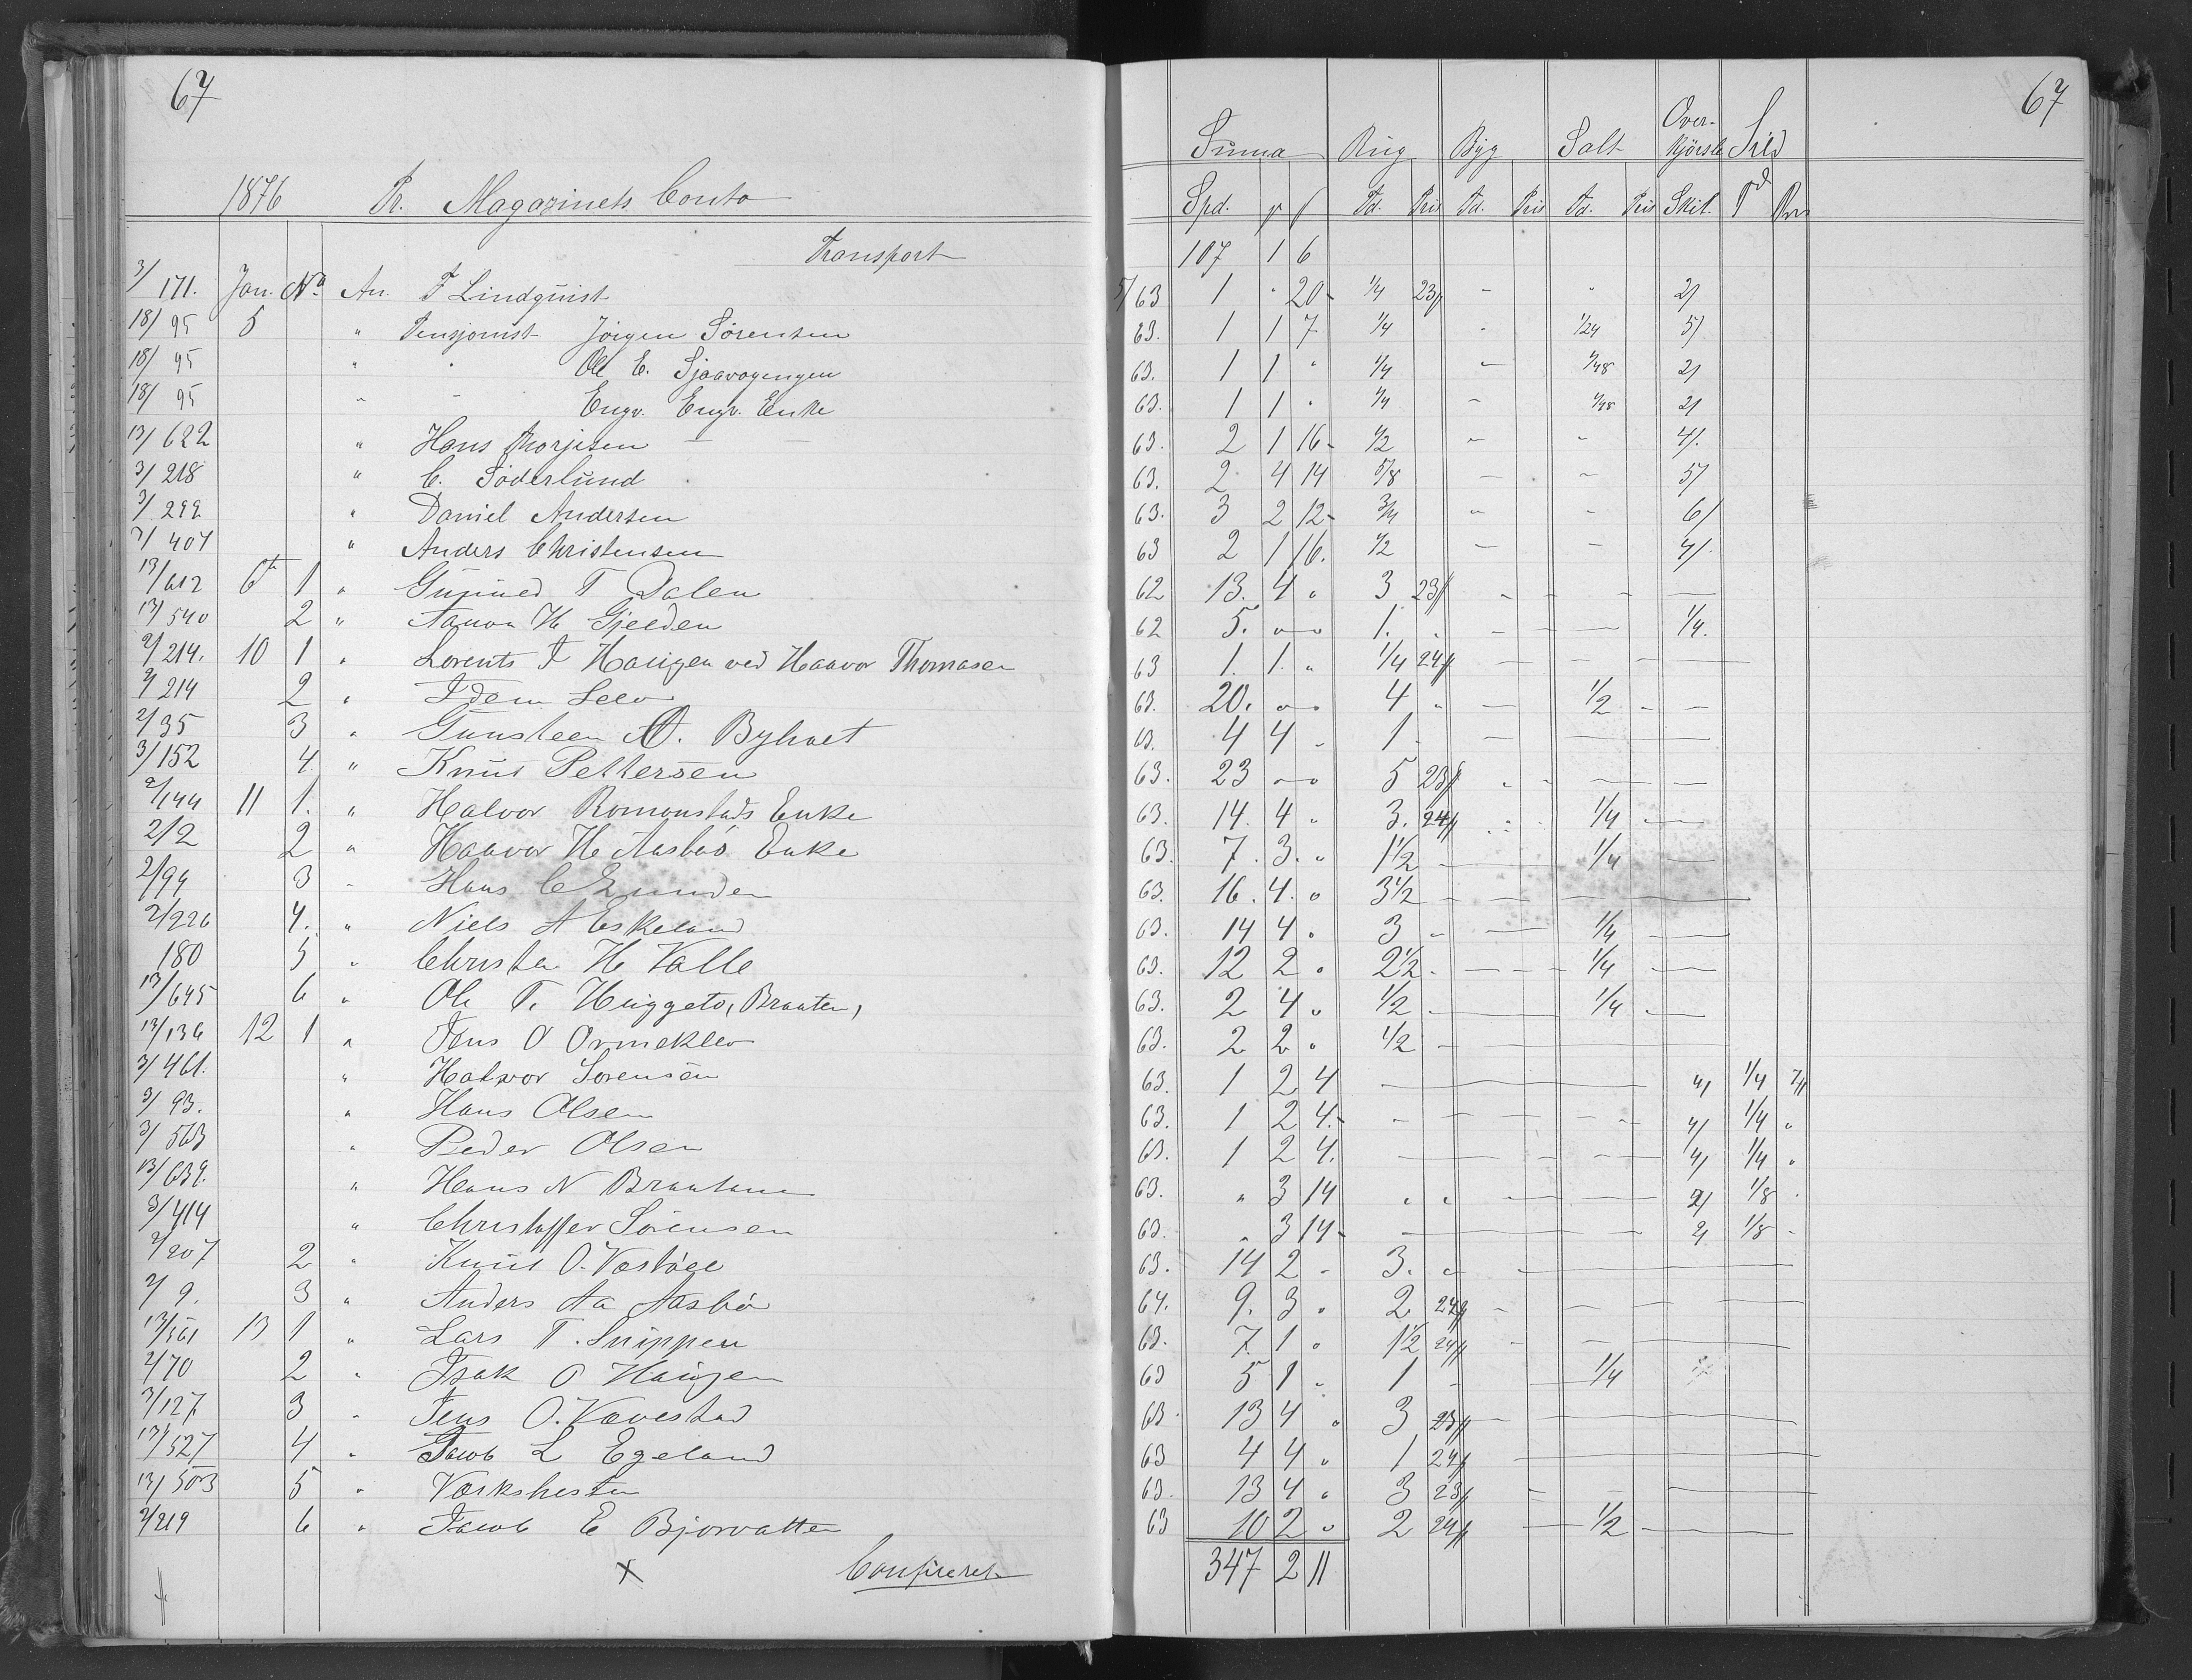 67
1876 Pr. Magazinets Conto
Transport
3/171. Jan. No. An. T Lindquist
18/95 5 " Pensjonist Jörgen Sörensen
18/95 " " Ole E. Sjaavogengen
18/95 " " Engv. Engv. Enke
13/622 " Hans Thorjesen
3/218 " C. Söderlund
3/299 " Daniel Andersen
3/407 " Anders Christensen
13/612 6t 1 " Gunuld T Dalen
13/540 2 " Aanon H Gjeeden
2/214. 10 1 " Lorents T Haugen ved Haavor Thomasen
2/214 2 " Idem Selv
2/35 3 " Gunsteen A. Byholt
3/152 4 " Knud Pettersen
2/144 11 1. " Halvor Romonstads Enke
2/2 2 " Haavor H Aasbö Enke
2/94 3 " Hans C Lunden
2/226 4. " Niels A Eskeland
180 5 " Christen H Valle
13/645 6 " Ole T. Huggeto, Braaten,
13/136 12 1 " Jens O Ormeklev
3/461. " Halvor Sorensen
3/93. " Hans Olsen
3/563 " Peder Olsen
13/639. " Hans N Braaten
3/414 " Christoffer Sörensen
2/207 2 " Knud O. Vastöel
2/9. 3 " Anders Aa Aasbö
13/561 13 1 " Lars T. Snippen
2/70 2 " Isak O Haugen
3/127 3 " Jens O. Vævestad
13/527 4 " Jacob L Egeland
13/503 5 " Værkshesten
2/219 6 " Jacob E Bjorvatten
x Confereret
67
Summa Rug Byg Salt Over-kjörsle Sild
Spd. Td. Pris Td. Pris Td. Pris Skil. Td Pris
107 1 6
5/63 1 " 20 1/4 23 - " 2/
63. 1 1 7 1/4 - 1/24 5/
63. 1 1 " 1/4 - 1/48 2/
63. 1 1 " 1/4 - 1/48 2/
63. 2 1 16 1/2 - - 4/.
63. 2 4 14 5/8 - - 5/
63. 3 2 12 3/4 - - 6/
63 2 1 16. 1/2 - - 4/.
62 13. 4 " 3 23 - - -
62 5. " " 1. " - - 1/4.
63 1. 1. " 1/4 24 - - -
63. 20. " " 4 " - 1/2 - -
63. 4 4 - 1 - -
63. 23 " " 5 23 - - -
63. 14. 4 " 3. 24 - 1/4 -
63. 7. 3. " 1 1/2 - 1/4 -
63. 16. 4. " 3 1/2 - - -
63. 14 4 " 3 - - 1/4 -
63. 12 2 " 2 1/2 - - 1/4 -
63. 2 4 " 1/2 - 1/4 -
63. 2 2 " 1/2 - -
63. 1 2 4 - - 4/ 1/4 7
63. 1 2 4. - - 4/ 1/4 "
63. 1 2 4. - - 4/ 1/4 "
63. " 3 14 " " - - 2/ 1/8 "
63. " 3 14 - - 2/ 1/8 -
63. 14 2 - 3. " - -
64. 9. 3 " 2 24 - - -
63. 7. 1 " 1 1/2 24 - - -
63 5 1 " 1 - - 1/4
63. 13 4 " 3 23 - -
63 4 4 " 1 24 - -
63. 13 4 " 3 23 - - -
63 10 2 " 2 24 - 1/2 -
347 2 11